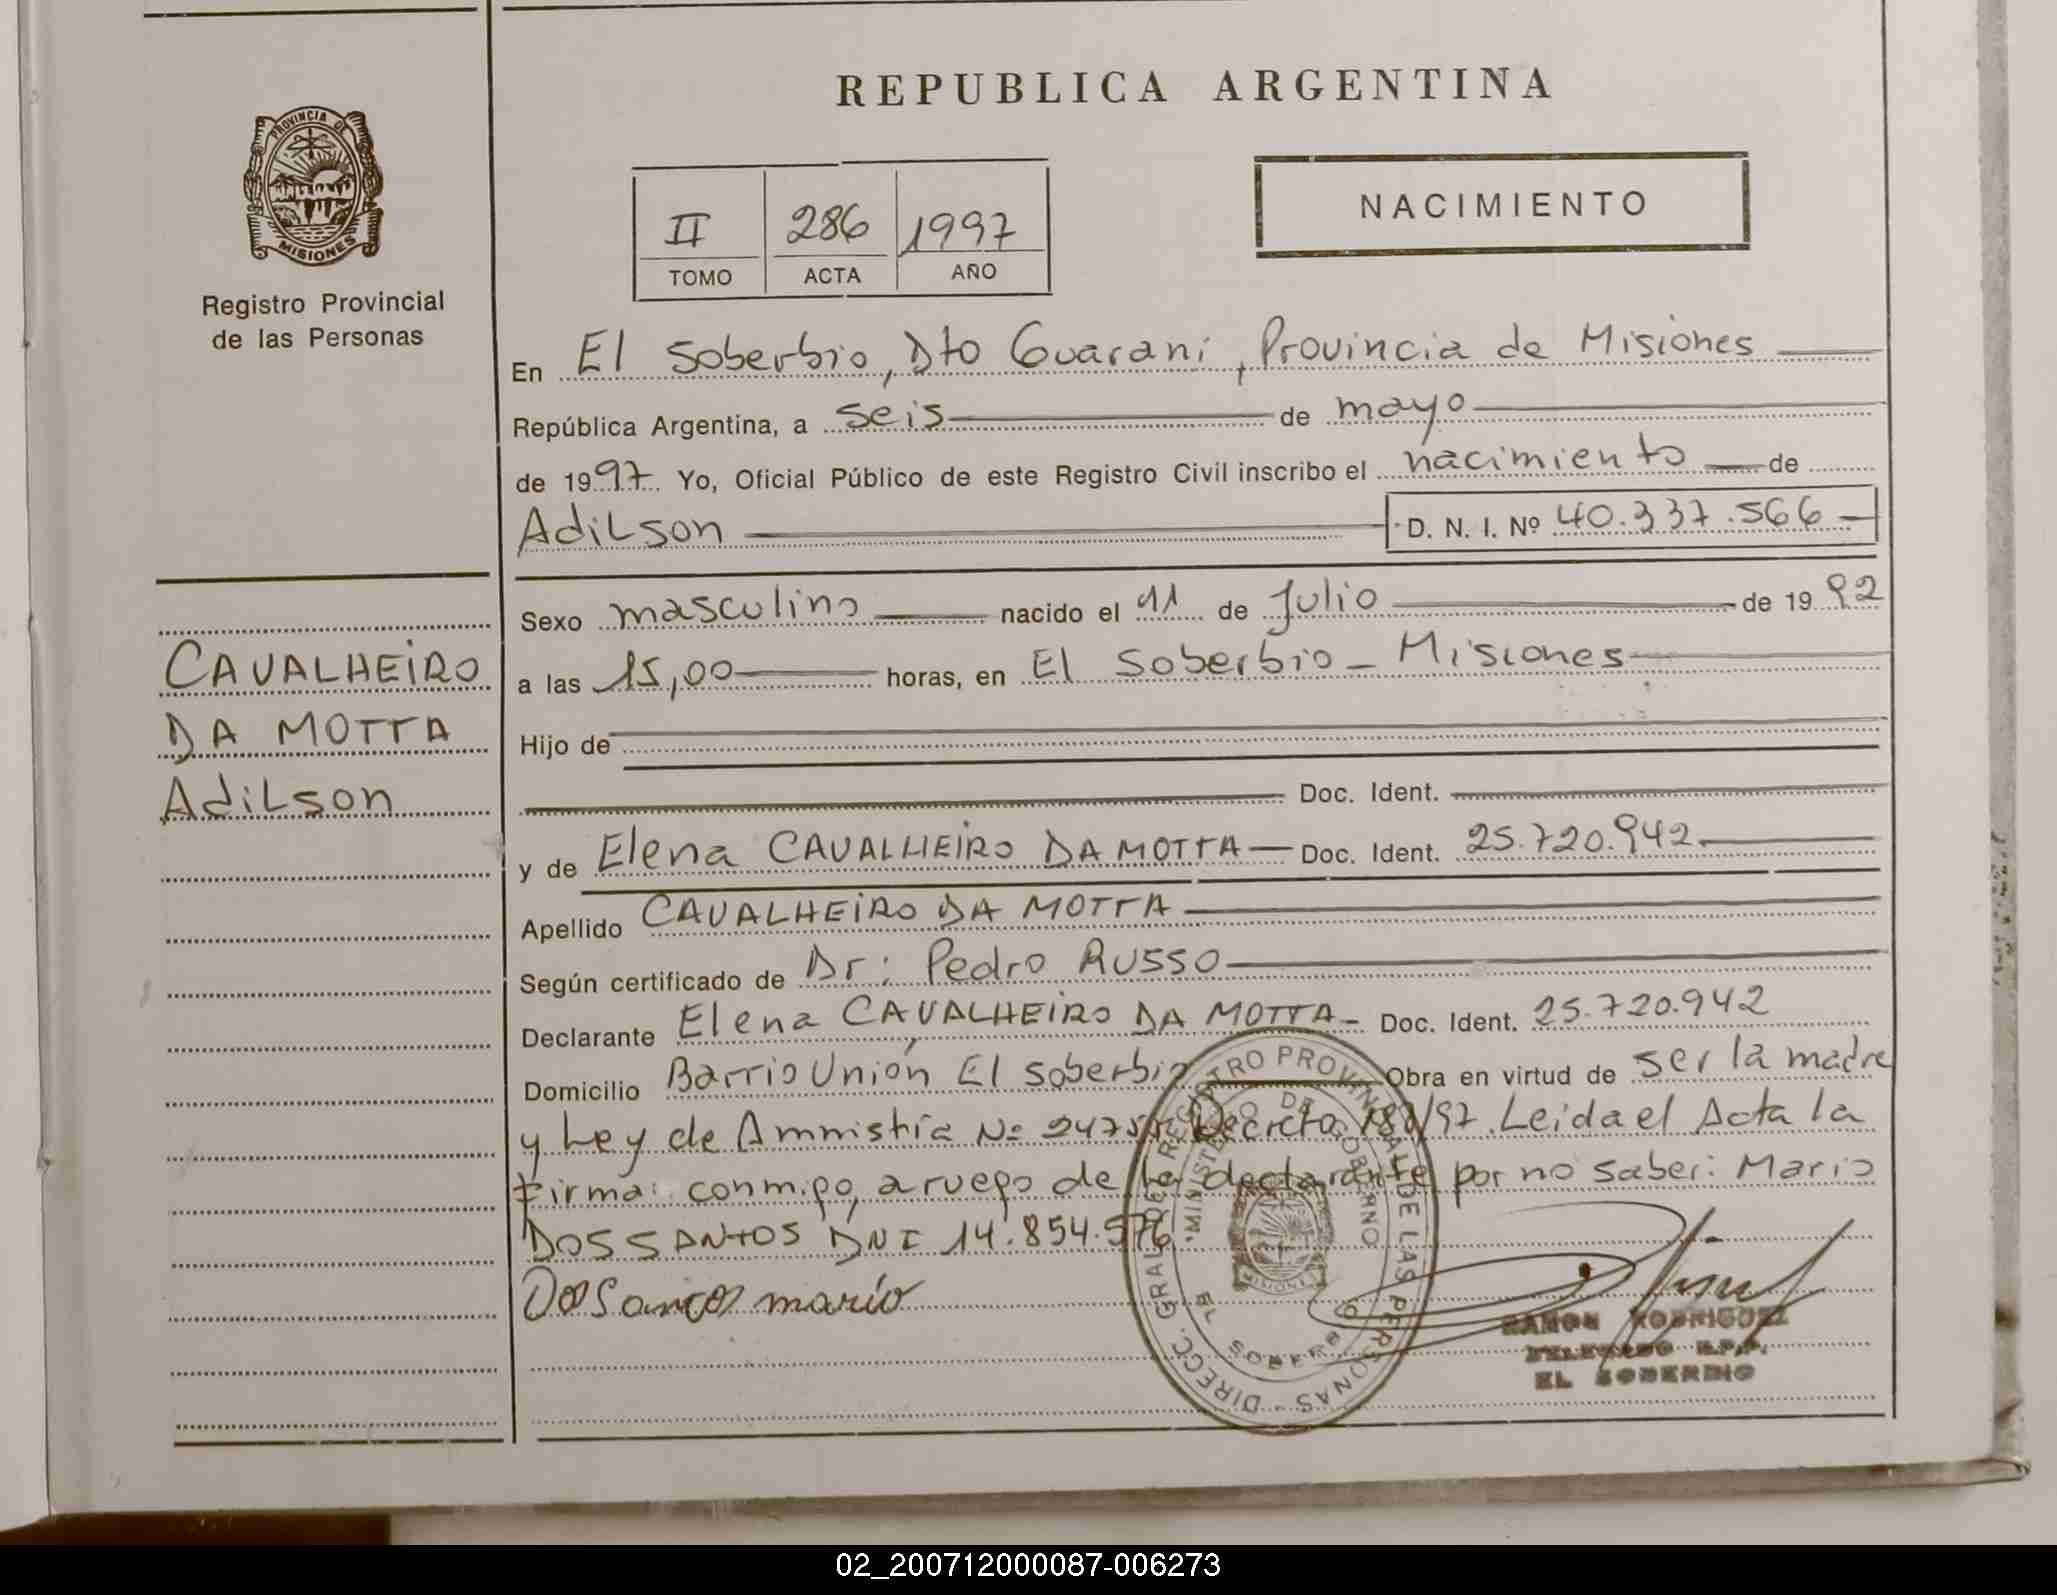 REPUBLICA ARGENTINA
PROVINCIA DE
MISIONES
Registro Provincial
de las Personas
II 286 1997
TOMO ACTA AÑO
NACIMIENTO
En El Soberbio, Dto Guarani, Provincia de Misiones
República Argentina, a seis de mayo
de 1997. Yo, Oficial Público de este Registro Civil inscribo el nacimiento de
Adilson D. N. I. Nº 40.337.566
CAVALHEIRO
DA MOTTA
Adilson
Sexo masculino nacido el 11 de Julio de 1992
a las 15,00 horas, en El Soberbio - Misiones
Hijo de
Doc. Ident.
y de Elena CAVALHEIRO DA MOTTA Doc. Ident. 25.720.942
Apellido CAVALHEIRO DA MOTTA
Según certificado de Dr: Pedro RUSSO
Declarante Elena CAVALHEIRO DA MOTTA - Doc. Ident. 25.720.942
Domicilio Barrio Unión El Soberbio Obra en virtud de ser la madre
y Ley de Amnistía Nº Decreto /97. Leida el Acta la
firma conmigo, a ruego de la declarante por no saber: Mario
DOS SANTOS DNI 14.854.576.
Dos Santos mario
DIRECC. GRAL. DE REGISTRO PROVINCIAL DE LAS PERSONAS
MINISTERIO DE GOBIERNO
MISIONES
EL SOBERBIO
RAMON RODRIGUEZ
DELEGADO R.P.P.
EL SOBERBIO
02_200712000087-006273